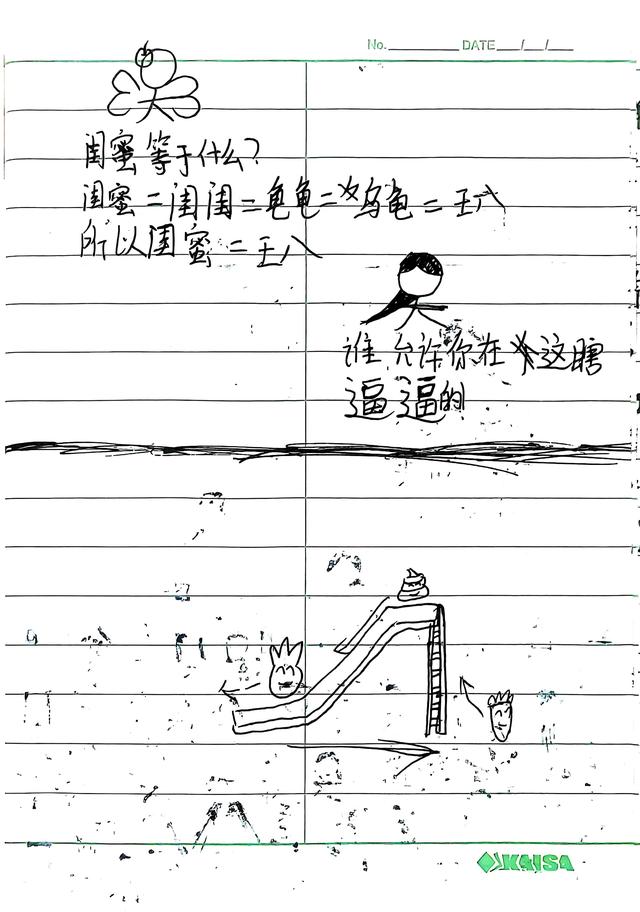 No. DATE / /
闺蜜等于什么?
闺蜜=闺闺=龟龟=乌龟=王八
所以闺蜜=王八
谁允许你在这瞎
逼逼的
KAISA